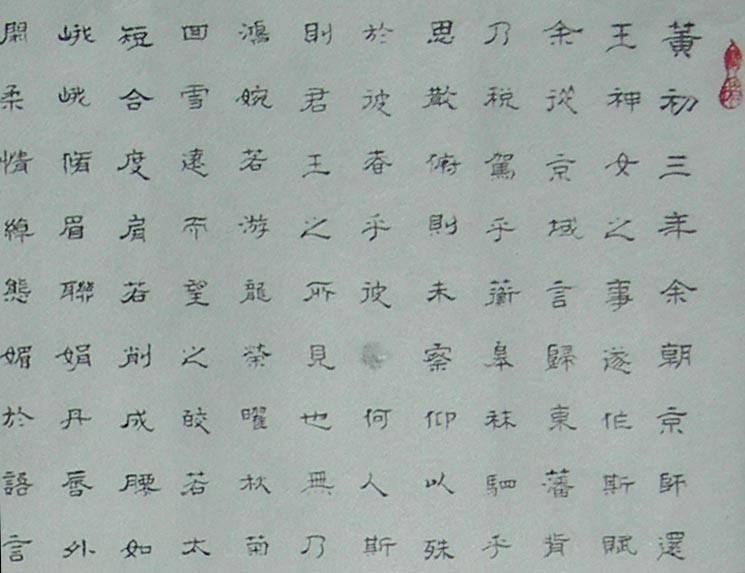 黃初三年余朝京師還
王神女之事遂作斯賦
余從京域言歸東藩背
乃稅駕乎蘅皋秣駟乎
思散俯則未察仰以殊
於彼者乎彼何人斯
則君王之所見也無乃
鴻婉若游龍榮曜秋菊
回雪遠而望之皎若太
短合度肩若削成腰如
峨峨脩眉聯娟丹脣外
閑柔情綽態媚於語言